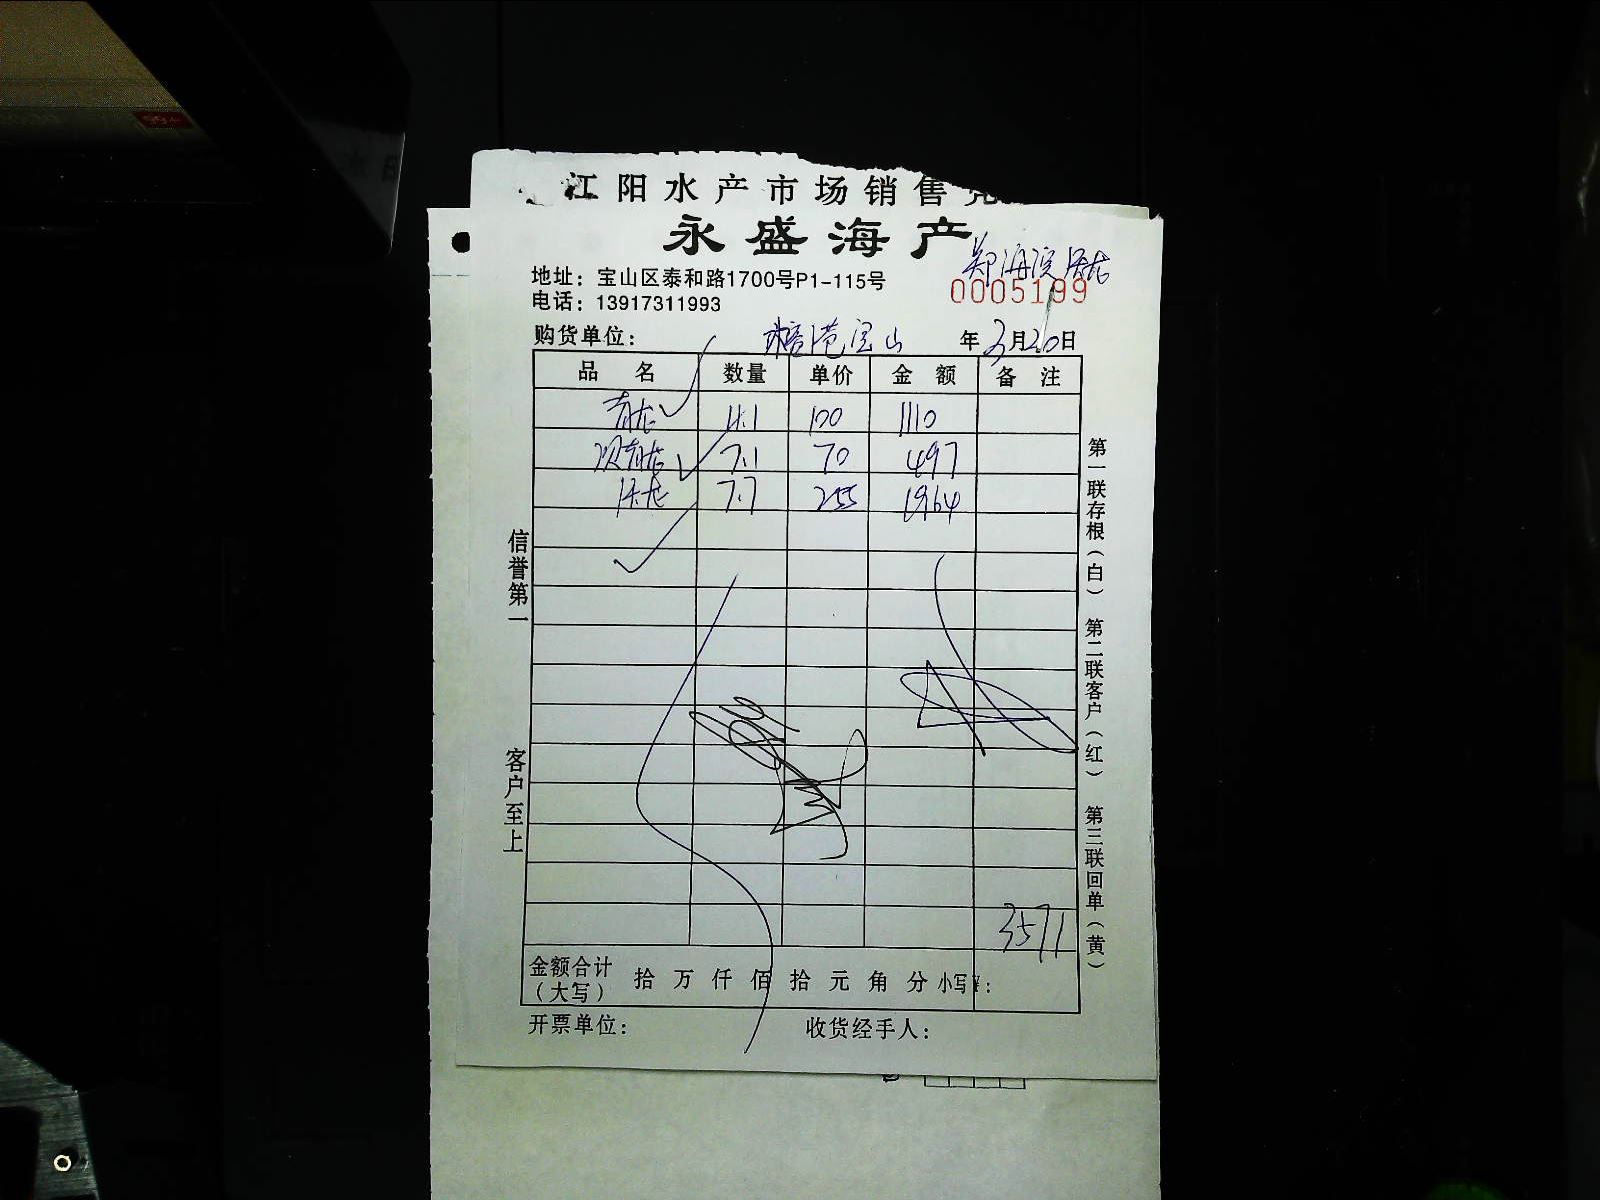 江阳水产市场销售凭
永盛海产
地址：宝山区泰和路1700号P1-115号
0005199
电话：13917311993
购货单位： 宝山 年3月20日
品 名 数量 单价 金 额 备 注
青龙 11.1 100 1110
次青龙 7.1 70 497
7.7 255 1964
3571
金额合计（大写） 拾 万 仟 佰 拾 元 角 分 小写¥：
开票单位： 收货经手人：
信誉第一
客户至上
第一联存根（白） 第二联客户（红） 第三联回单（黄）
99+